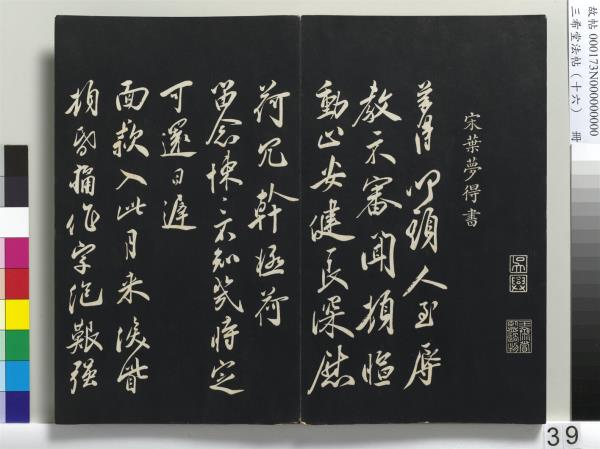 故帖 000173N000000000
三希堂法帖（十六） 冊
宋葉夢得書
夢得叩頭人至辱
教示審聞暄
動止安健良深慰
荷兄幹極荷
留念悚〻不知幾時定
可還日遲
面款入此月來復
昏痛作字絕艱強
39